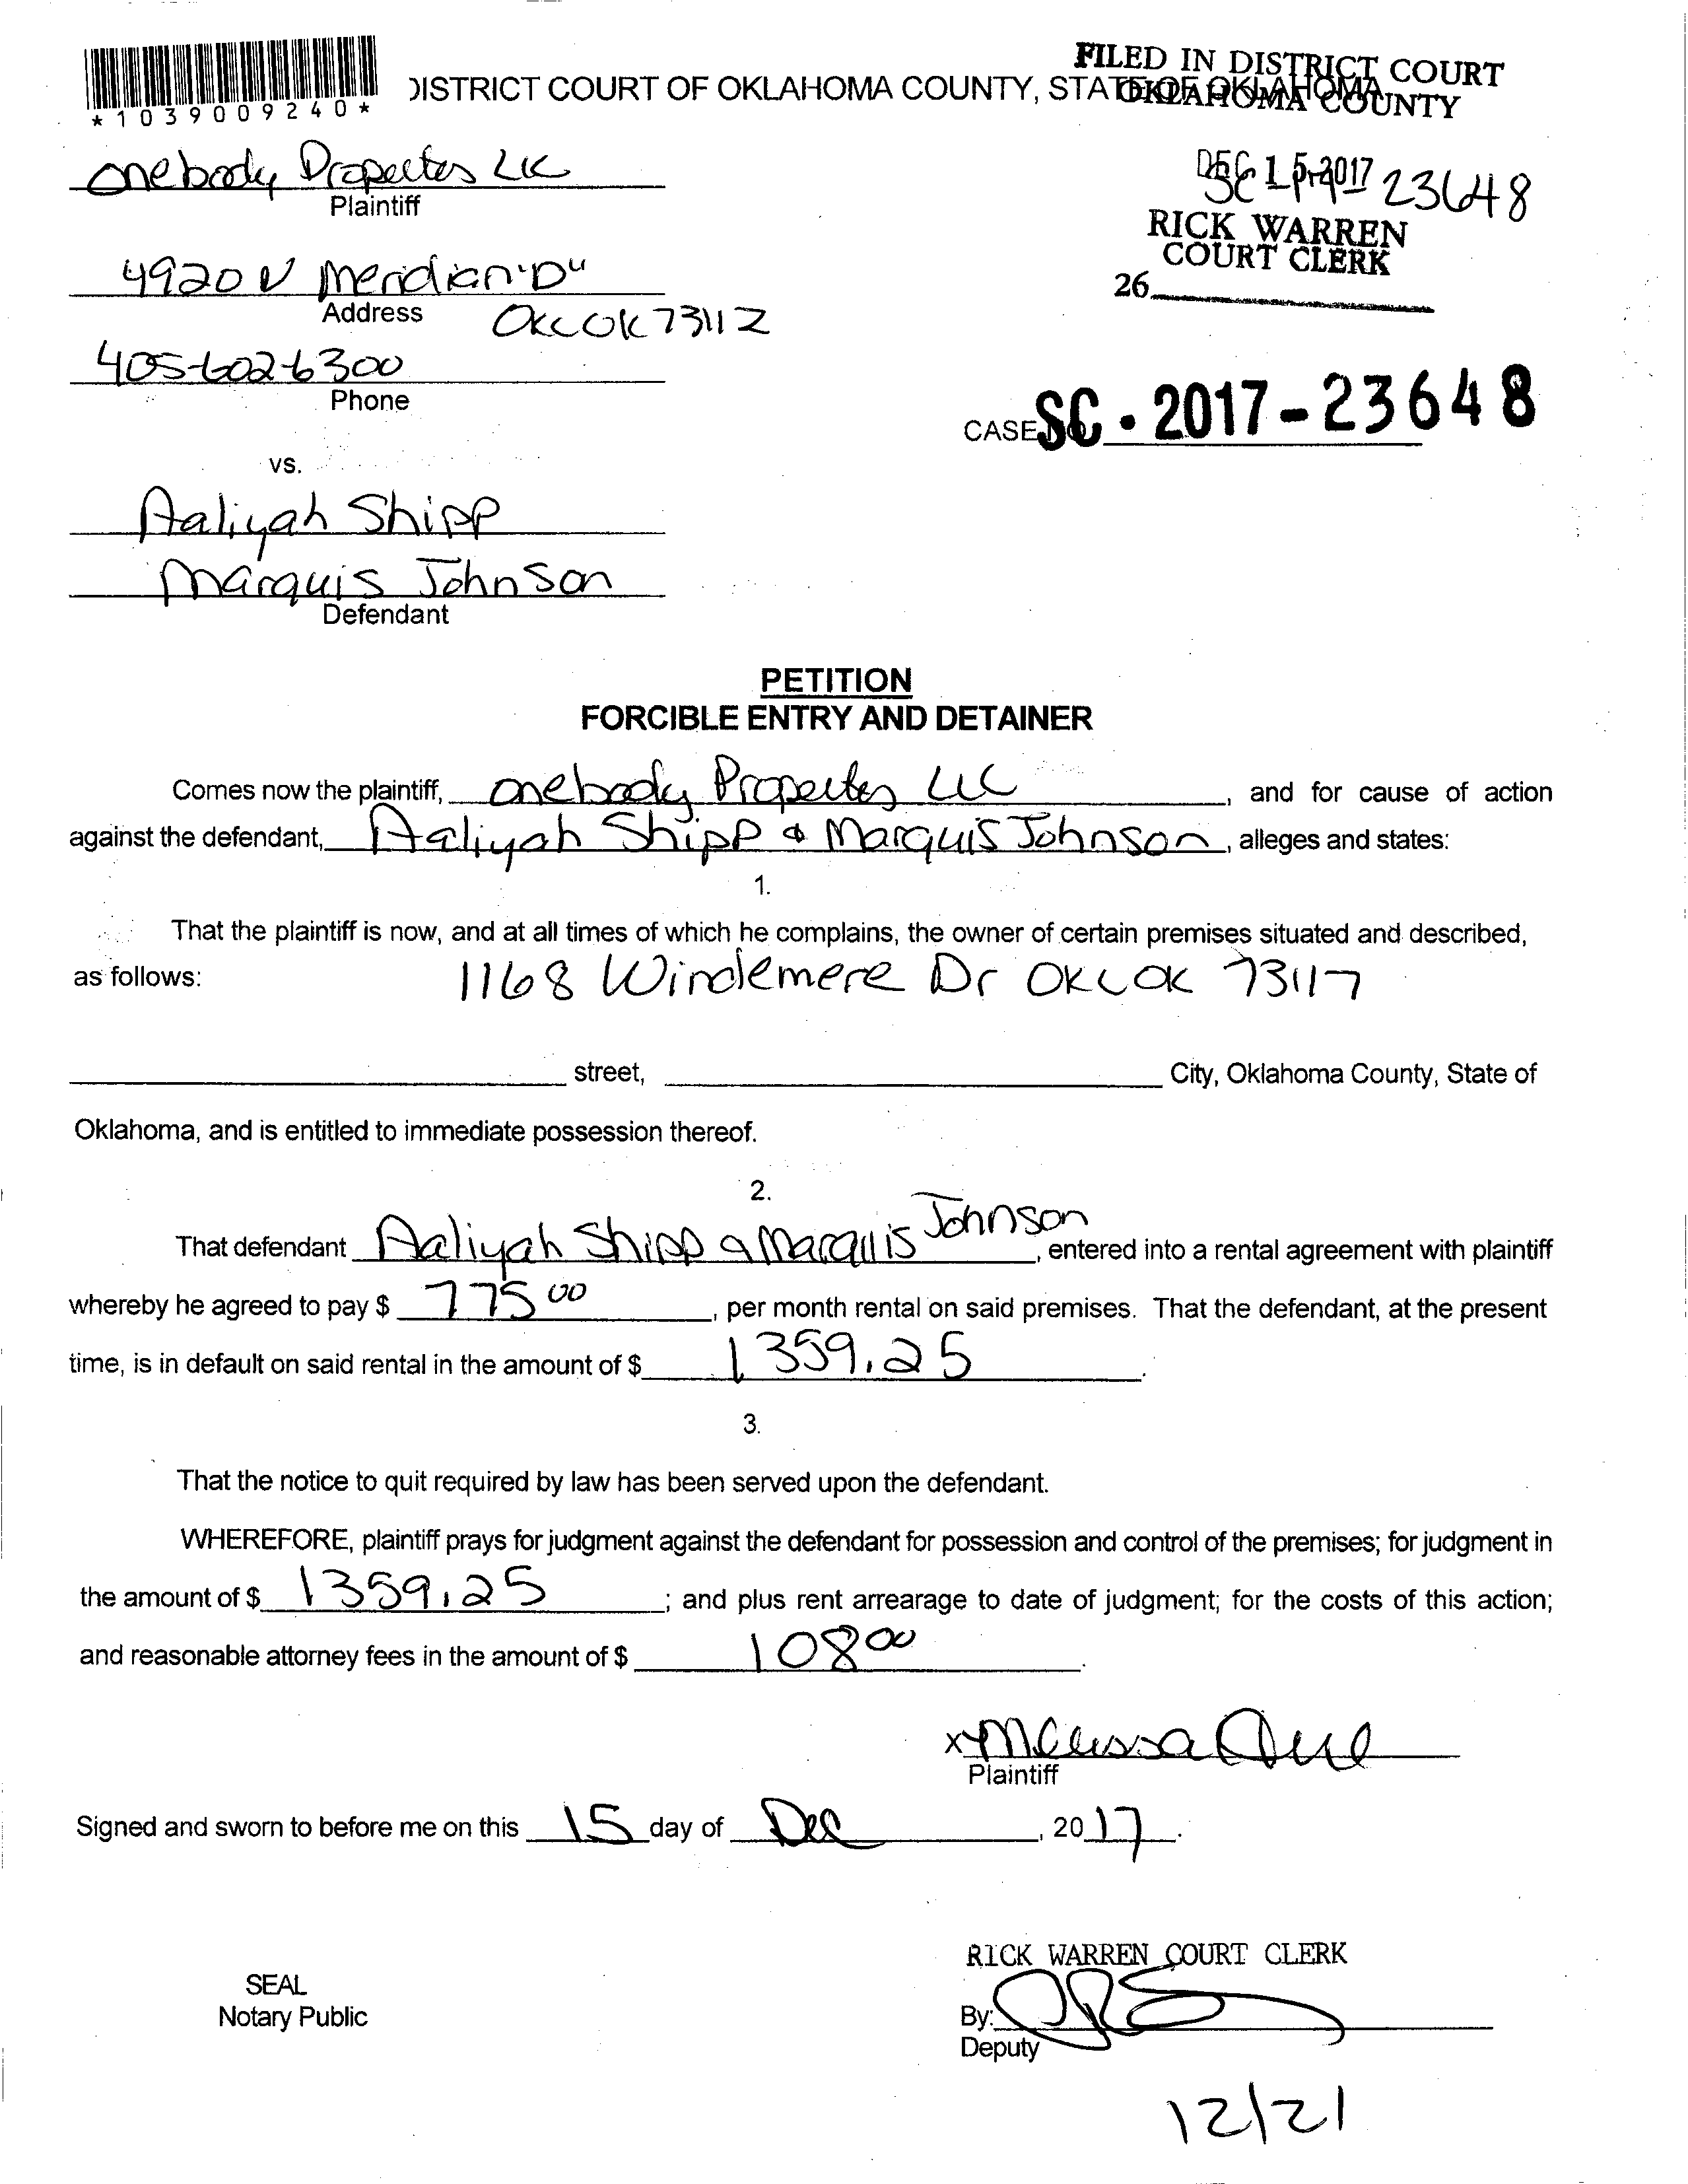 *1039009240*
DISTRICT COURT OF OKLAHOMA COUNTY, STATE OF OKLAHOMA
FILED IN DISTRICT COURT
OKLAHOMA COUNTY
DEC 15 2017
SC 17 23648
RICK WARREN
COURT CLERK
26
onebody Propertes LLC
Plaintiff
4920 N Meridian "D"
Address OKC OK 73112
405-602-6300
Phone
CASE NO. SC-2017-23648
vs.
Aaliyah Shipp
Marquis Johnson
Defendant
PETITION
FORCIBLE ENTRY AND DETAINER
Comes now the plaintiff, onebody Propertes LLC, and for cause of action
against the defendant, Aaliyah Shipp & Marquis Johnson, alleges and states:
1.
That the plaintiff is now, and at all times of which he complains, the owner of certain premises situated and described,
as follows: 1168 Windemere Dr OKC OK 73117
street, City, Oklahoma County, State of
Oklahoma, and is entitled to immediate possession thereof.
2.
That defendant Aaliyah Shipp & Marquis Johnson, entered into a rental agreement with plaintiff
whereby he agreed to pay $ 775 00, per month rental on said premises. That the defendant, at the present
time, is in default on said rental in the amount of $ 1359.25.
3.
That the notice to quit required by law has been served upon the defendant.
WHEREFORE, plaintiff prays for judgment against the defendant for possession and control of the premises; for judgment in
the amount of $ 1359.25; and plus rent arrearage to date of judgment; for the costs of this action;
and reasonable attorney fees in the amount of $ 108 00.
x Melissa
Plaintiff
Signed and sworn to before me on this 15 day of Dec, 2017.
RICK WARREN COURT CLERK
SEAL
Notary Public
By:
Deputy
12/21